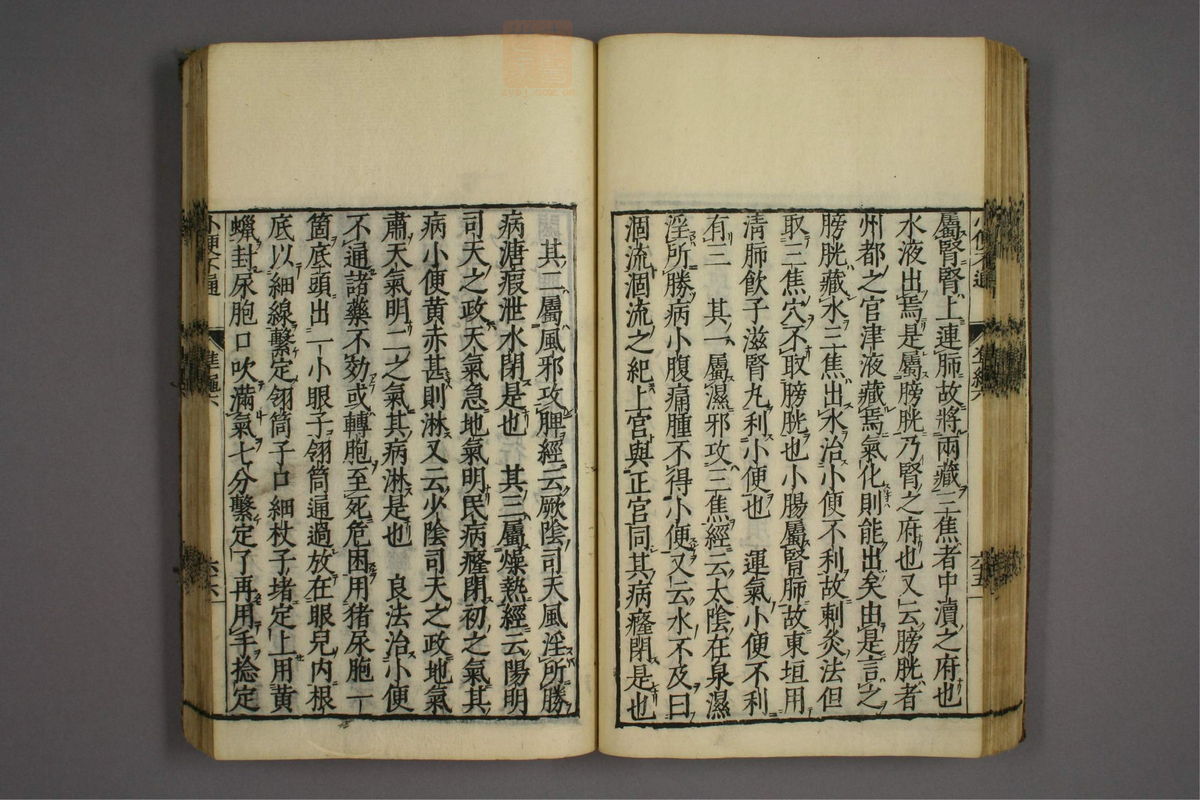 屬腎腎上連肺故將兩藏三焦者中瀆之府也
水液出焉是屬膀胱乃腎之府也又云膀胱者
州都之官津液藏焉氣化則能出矣由是言之
膀胱藏水三焦出水治小便不利故刺灸法但
取三焦穴不取膀胱也小腸屬腎肺故東垣用
清肺飲子滋腎丸利小便也　運氣小便不利
有三　其一屬濕邪攻三焦經云太陰在泉濕
淫所勝病小腹痛腫不得小便又云水不及曰
涸流涸流之紀上宮與正宮同其病癃閉是也
其二屬風邪攻脾經云厥陰司天風淫所勝
病溏瘕泄水閉是也　其三屬燥熱經云陽明
司天之政天氣急地氣明民病癃閉初之氣其
病小便黃赤甚則淋又云少陰司天之政地氣
肅天氣明二之氣其病淋是也　良法治小便
不通諸藥不効或轉胞至死危困用猪尿胞一
箇底頭出一小眼子翎筒通過放在眼兒內根
底以細線繫定翎筒子口細杖子堵定上用黃
蠟封尿胞口吹滿氣七分繫定了再用手捻定
小便不通
準繩六
六十六